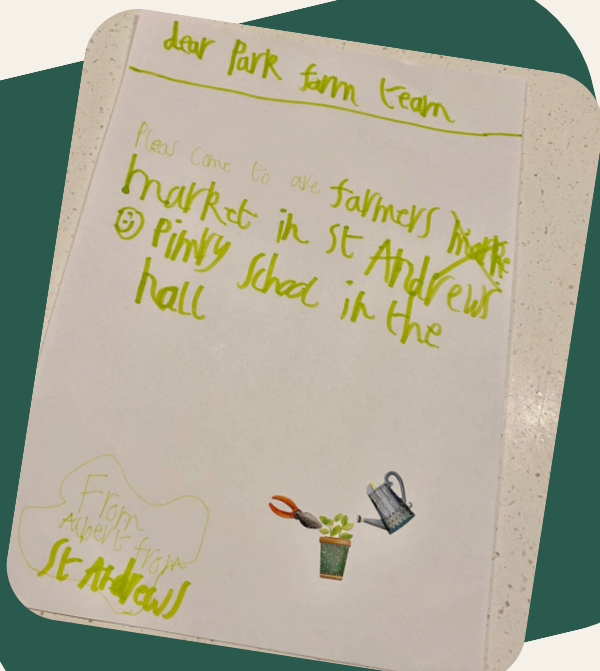 dear Park farm team
Pleas come to are farmers
market in st Andrews
Pimry School in the
hall
From
Albert from
St Andrews